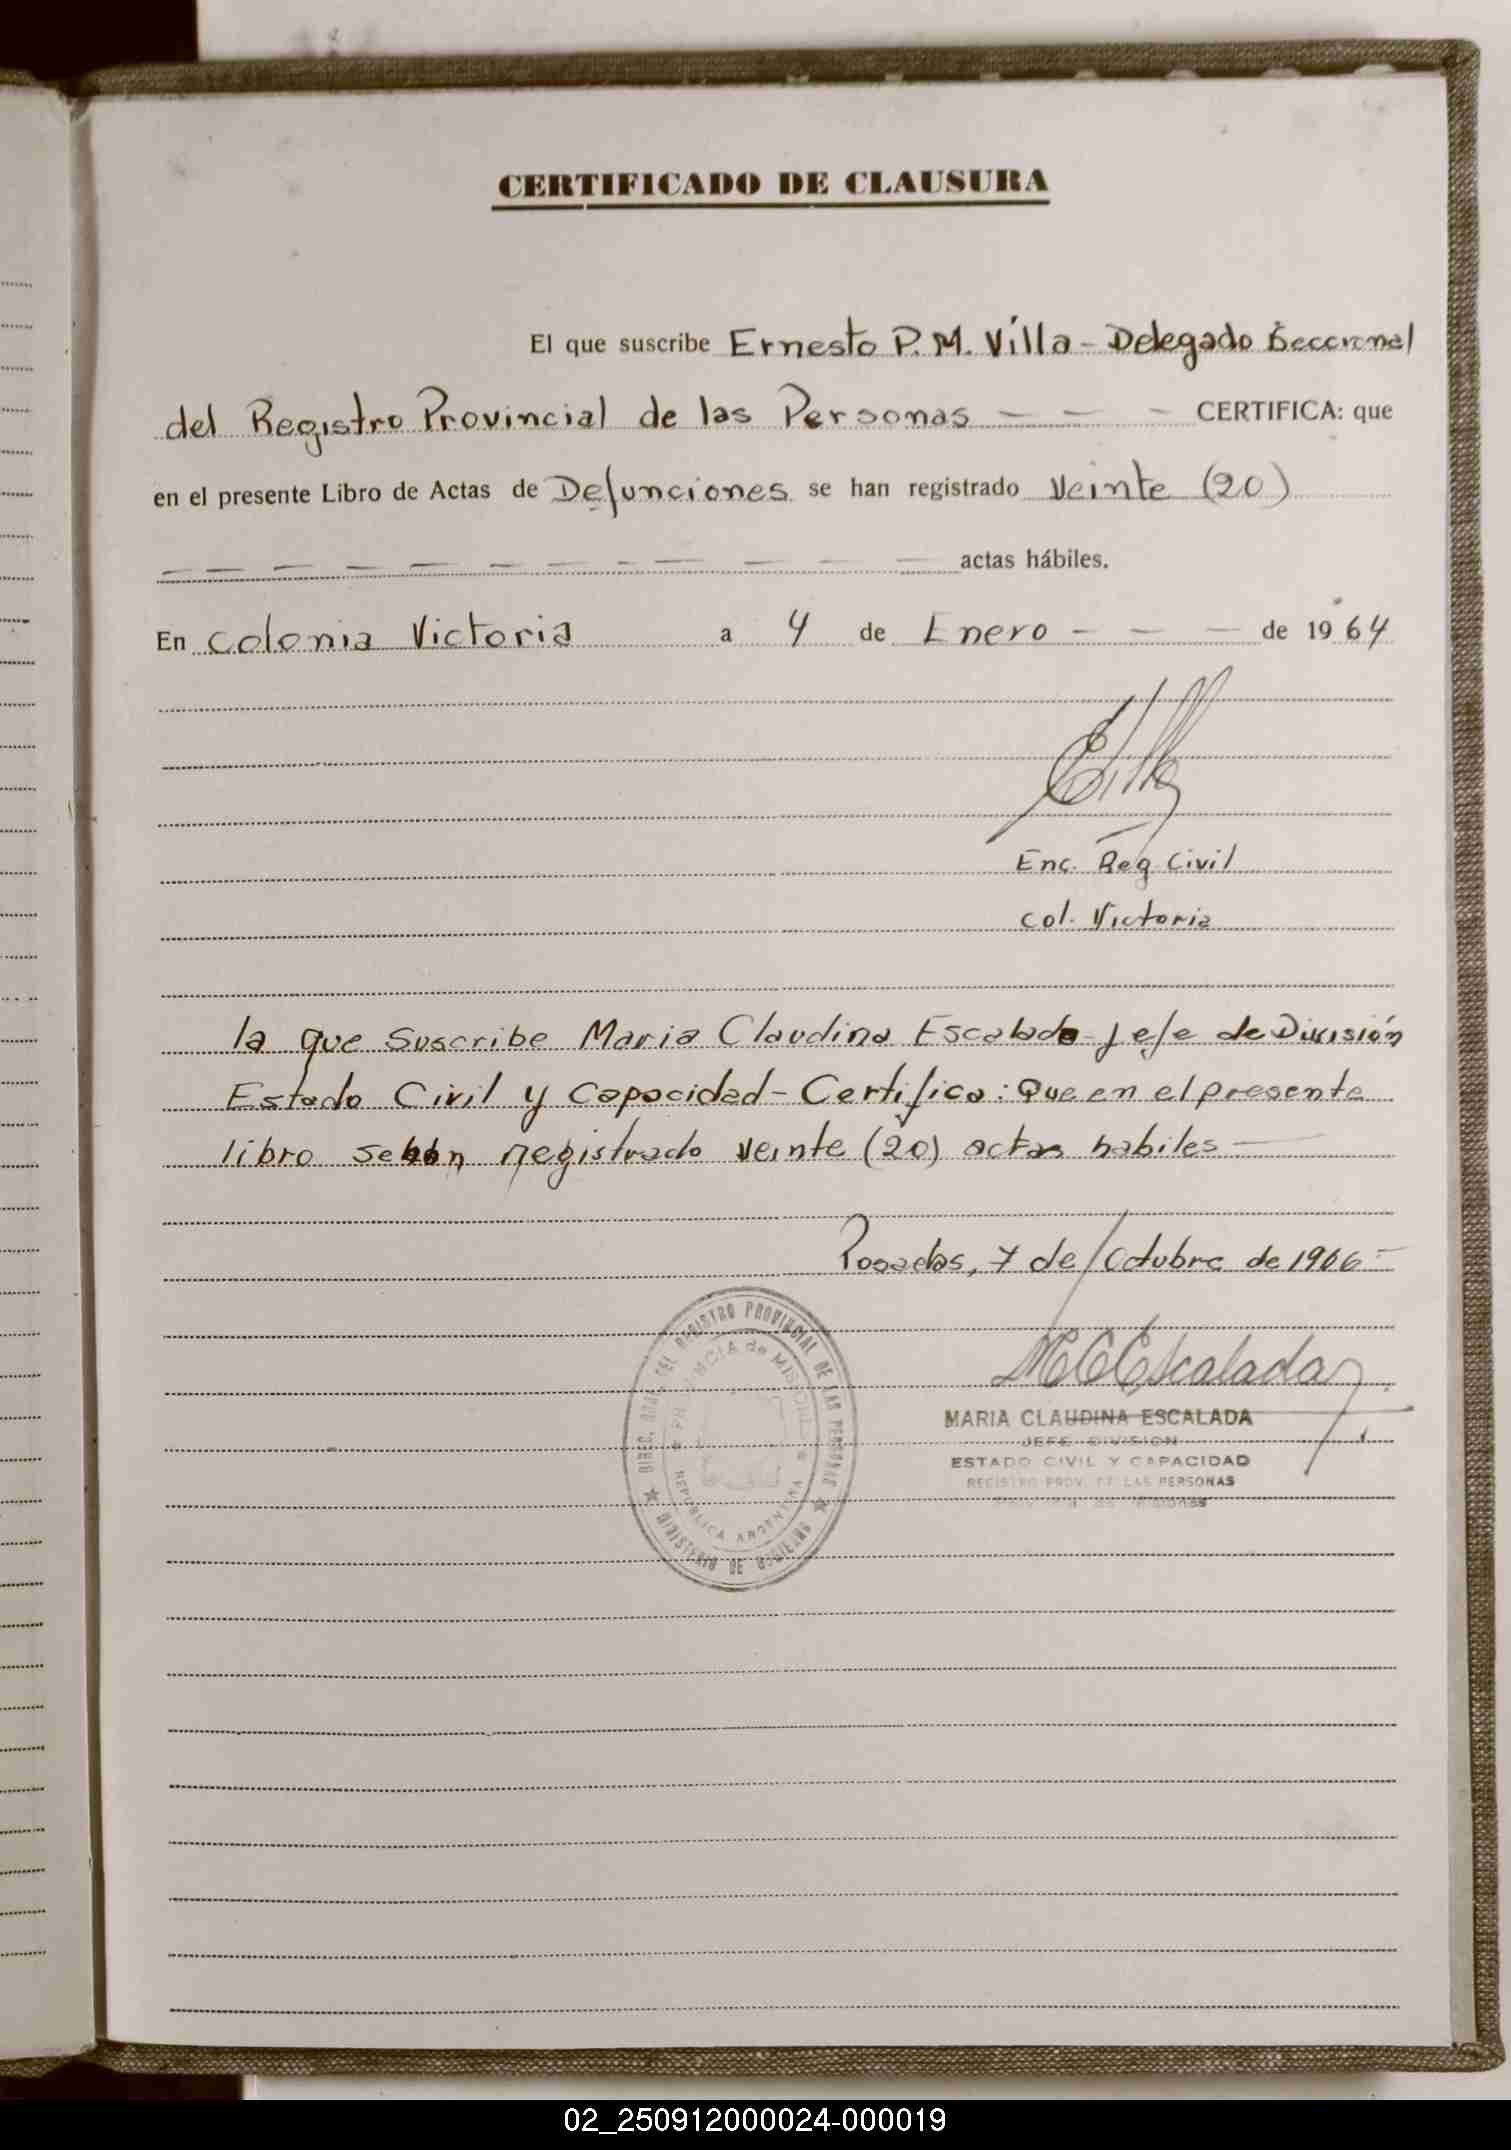 CERTIFICADO DE CLAUSURA
El que suscribe Ernesto P. M. Villa - Delegado Seccional
del Registro Provincial de las Personas — — — CERTIFICA: que
en el presente Libro de Actas de Defunciones se han registrado Veinte (20)
— — — — — — — — — — — — actas hábiles.
En Colonia Victoria a 4 de Enero - — — de 1964
Enc. Reg. Civil
Col. Victoria
la que suscribe Maria Claudina Escalada Jefe de División
Estado Civil y Capacidad - Certifica: Que en el presente
libro se han registrado veinte (20) actas habiles —
Posadas, 7 de Octubre de 1966 -
M C Escalada
MARIA CLAUDINA ESCALADA
JEFE DIVISION
ESTADO CIVIL Y CAPACIDAD
REGISTRO PROV. DE LAS PERSONAS
Provincia de Misiones
DIREC. GRAL. DEL REGISTRO PROVINCIAL DE LAS PERSONAS
PROVINCIA de MISIONES
REPUBLICA ARGENTINA
MINISTERIO DE GOBIERNO
02_250912000024-000019